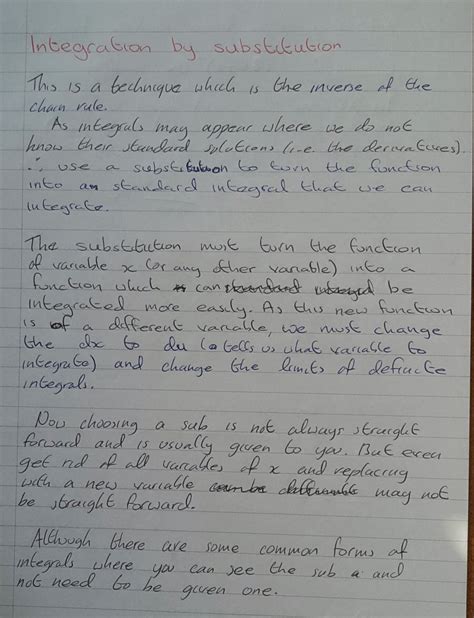 Integration by substitution
This is a technique which is the inverse of the
chain rule.
As integrals may appear where we do not
know their standard solutions (i.e. the derivatives).
∴ use a substitution to turn the function
into an standard integral that we can
integrate.
The substitution must turn the function
of variable x (or any other variable) into a
function which can be
integrated more easily. As this new function
is of a different variable, we must change
the dx to du (a tells us what variable to
integrate) and change the limits of definite
integrals.
Now choosing a sub is not always straight
forward and is usually given to you. But even
get rid of all variables of x and replacing
with a new variable may not
be straight forward.
Although there are some common forms of
integrals where you can see the sub a and
not need to be given one.